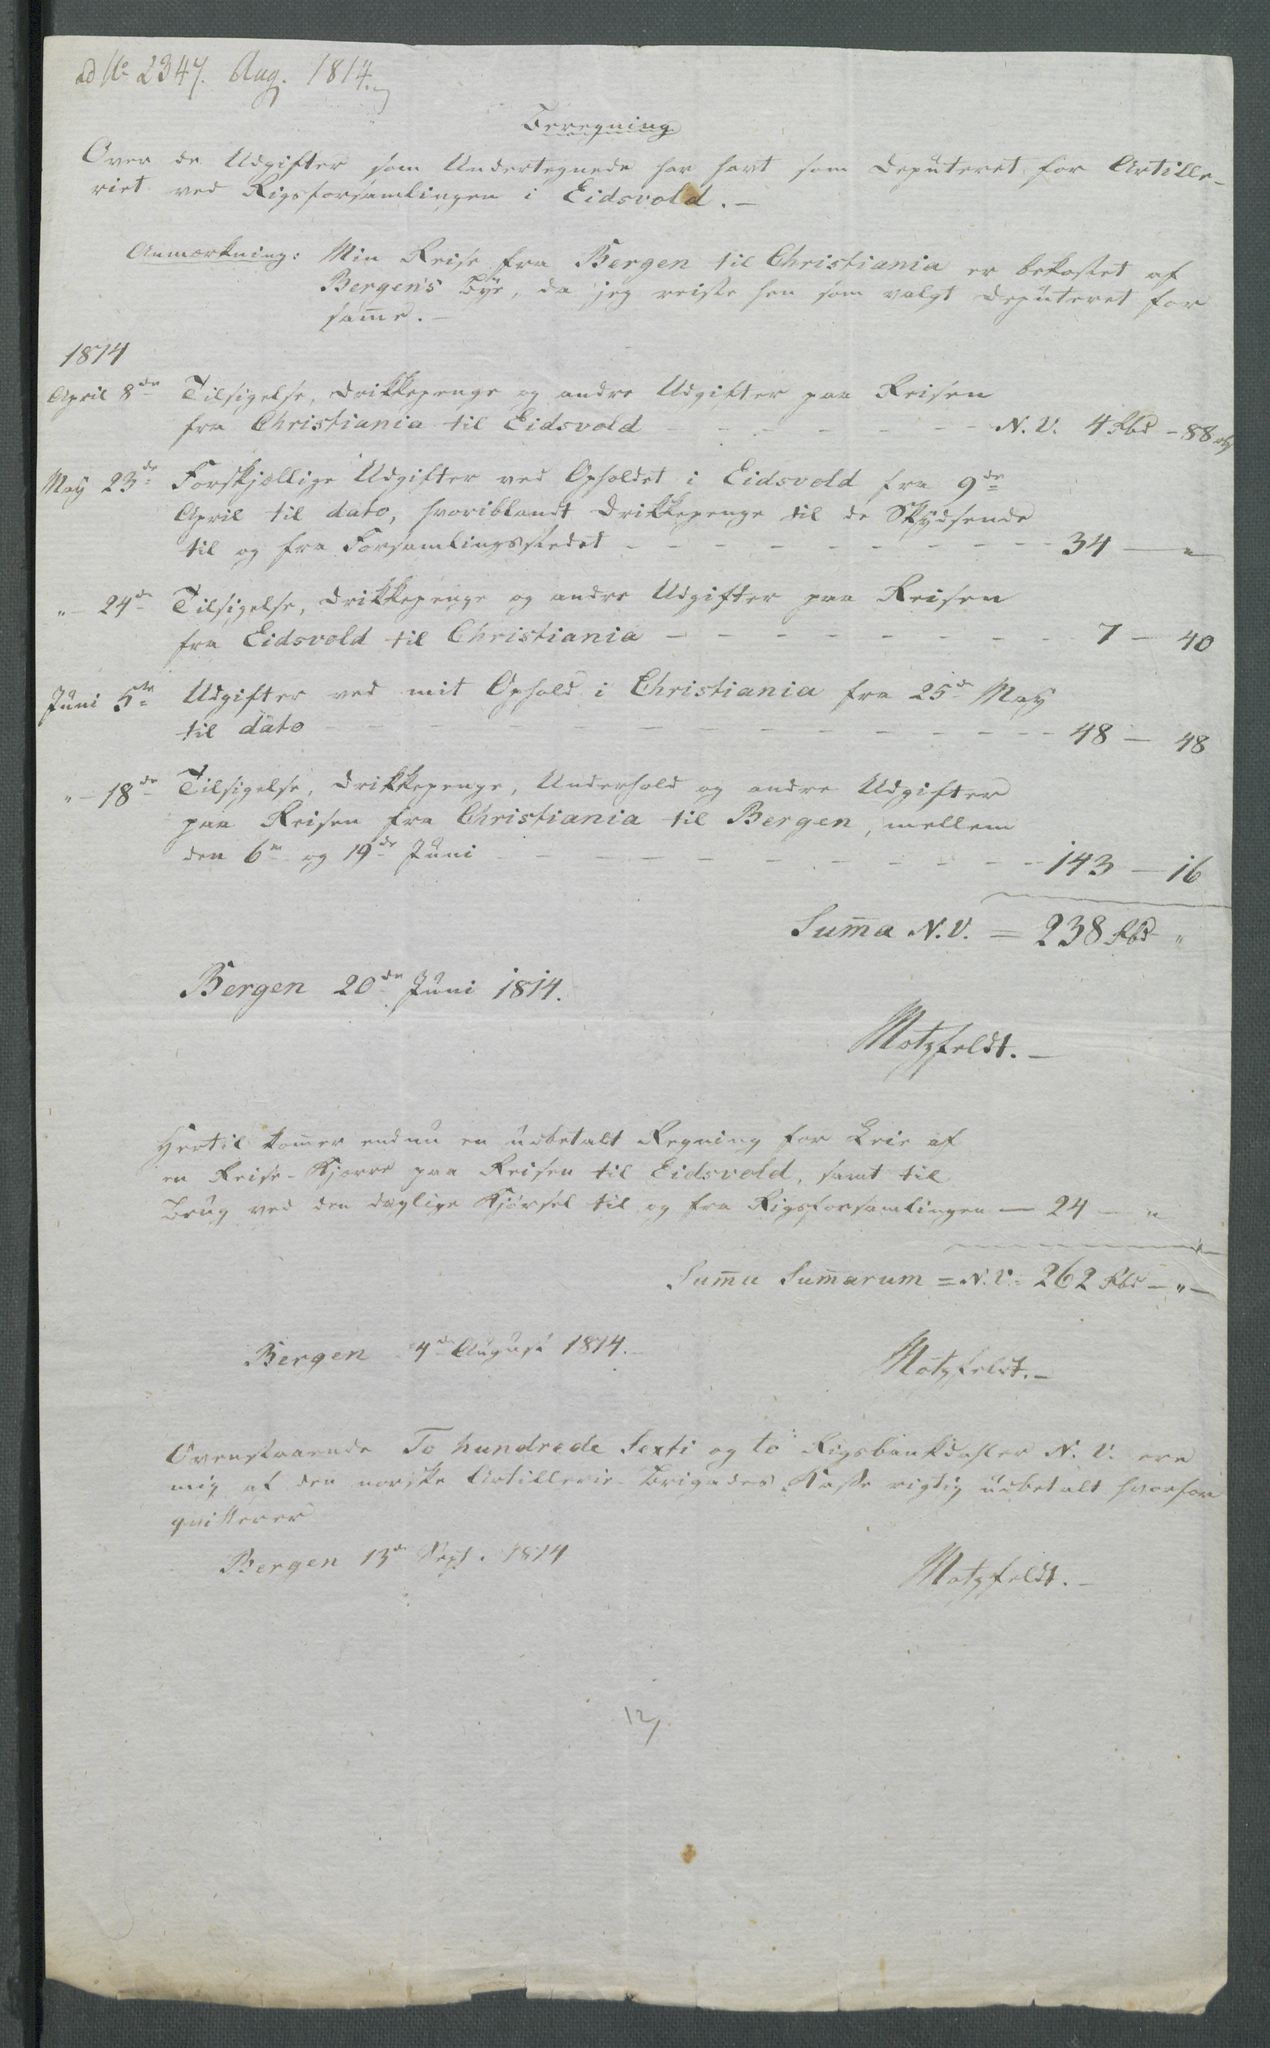 ad No 2347. Aug. 1814.
Beregning
Over de Udgifter som Undertegnede har havt som Deputeret for Artille-
riet ved Rigsforsamlingen i Eidsvold. —
Anmærkning: Min Reise fra Bergen til Christiania er bekostet af
Bergens Bye, da jeg reiste hen som valgt Deputeret for
sam̄e. —
1814
April 8de Tilsigelse, Drikkepenge og andre Udgifter paa Reisen
fra Christiania til Eidsvold — — — — — — — N.V. 4 Rbd – 88
May 23de Forskjællige Udgifter ved Opholdet i Eidsvold fra 9de
April til dato, hvoriblandt Drikkepenge til de Skydsende
til og fra Forsamlingsstedet — — — — — — — — — 34 — "
" — 24de Tilsigelse, Drikkepenge og andre Udgifter paa Reisen
fra Eidsvold til Christiania — — — — — — — — — 7 — 40
Juni 5te Udgifter ved mit Ophold i Christiania fra 25de May
til dato — — — — — — — — — — — — — 48 — 48
" — 18de Tilsigelse, Drikkepenge, Underhold og andre Udgifter
paa Reisen fra Christiania til Bergen, mellem
den 6te og 19de Juni — — — — — — — — — — 143 — 16
Sum̄a N.V. = 238 Rbd "
Bergen 20de Juni 1814.
Motzfeldt. —
Hertil kom̄er endnu en udbetalt Regning for Leie af
en Reise-Kjærre paa Reisen til Eidsvold, samt til
Brug ved den daglige Kjørsel til og fra Rigsforsamlingen — 24 — "
Sum̄a Sum̄arum = N.V. 262 Rbd — " —
Bergen 4de August 1814. —
Motzfeldt. —
Ovenstaaende To hundrede Sexti og to Rigsbankdaler N. V. ere
mig af den norske Artillerie-Brigades Kasse rigtig udbetalt hvorfor
qvitterer
Bergen 13de Sept. 1814
Motzfeldt. —
12/